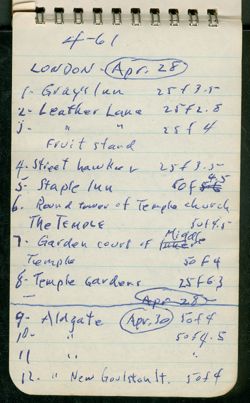 4-61
LONDON - Apr. 28
1- Gray's Inn 25 f 3.5
2- Leather Lane 25 f 2.8
3 " " 25 f 4
Fruit stand
4- Street hawker 25 f 3.5
5- Staple Inn 50 f 4.5
6- Round tower of Temple church
The Temple 50 f 4.5
7- Garden court of Middle
Temple 50 f 4
8- Temple Gardens 25 f 6.3
Apr 28
9- Aldgate Apr. 30 50 f 4
10- " 50 f 4.5
11 " "
12. " New Goulston St. 50 f 4